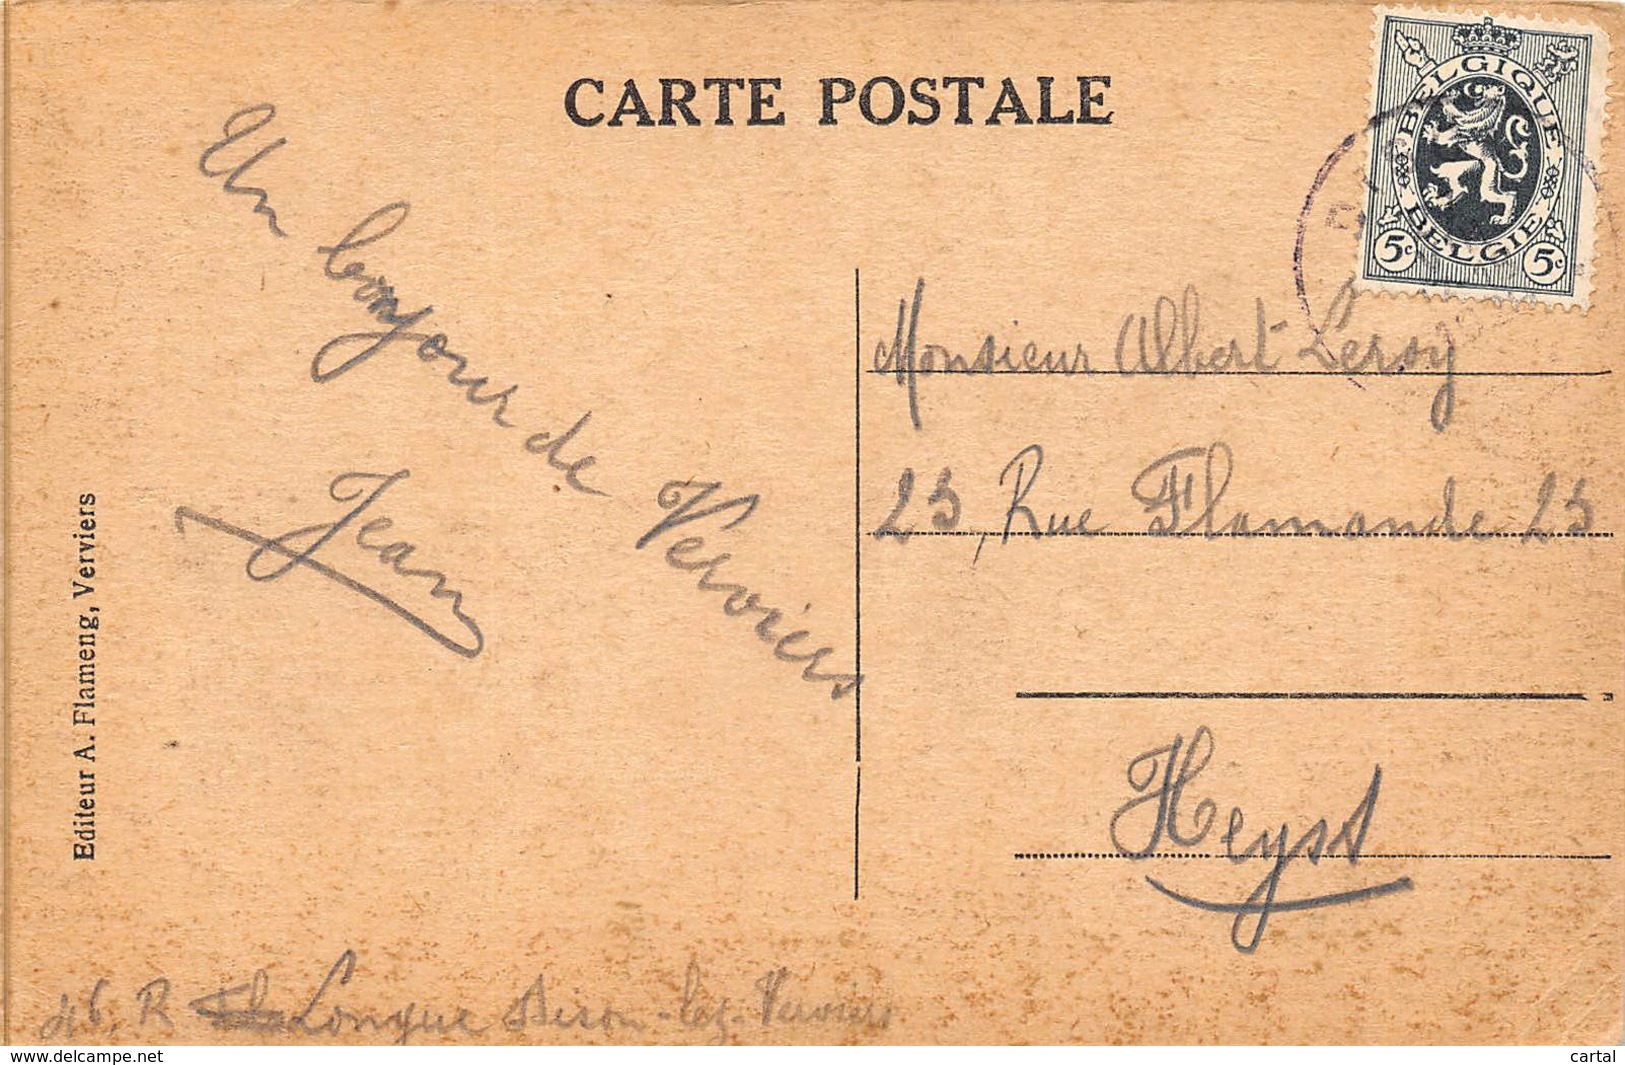 CARTE POSTALE
BELGIQUE
BELGIE
5c 5c
Un bonjour de Verviers
Jean
Monsieur Albert Leroy
23, Rue Flamande 23
Heyst
Editeur A. Flameng, Verviers
46, R Longue Dison-lez-Verviers
www.delcampe.net
cartal